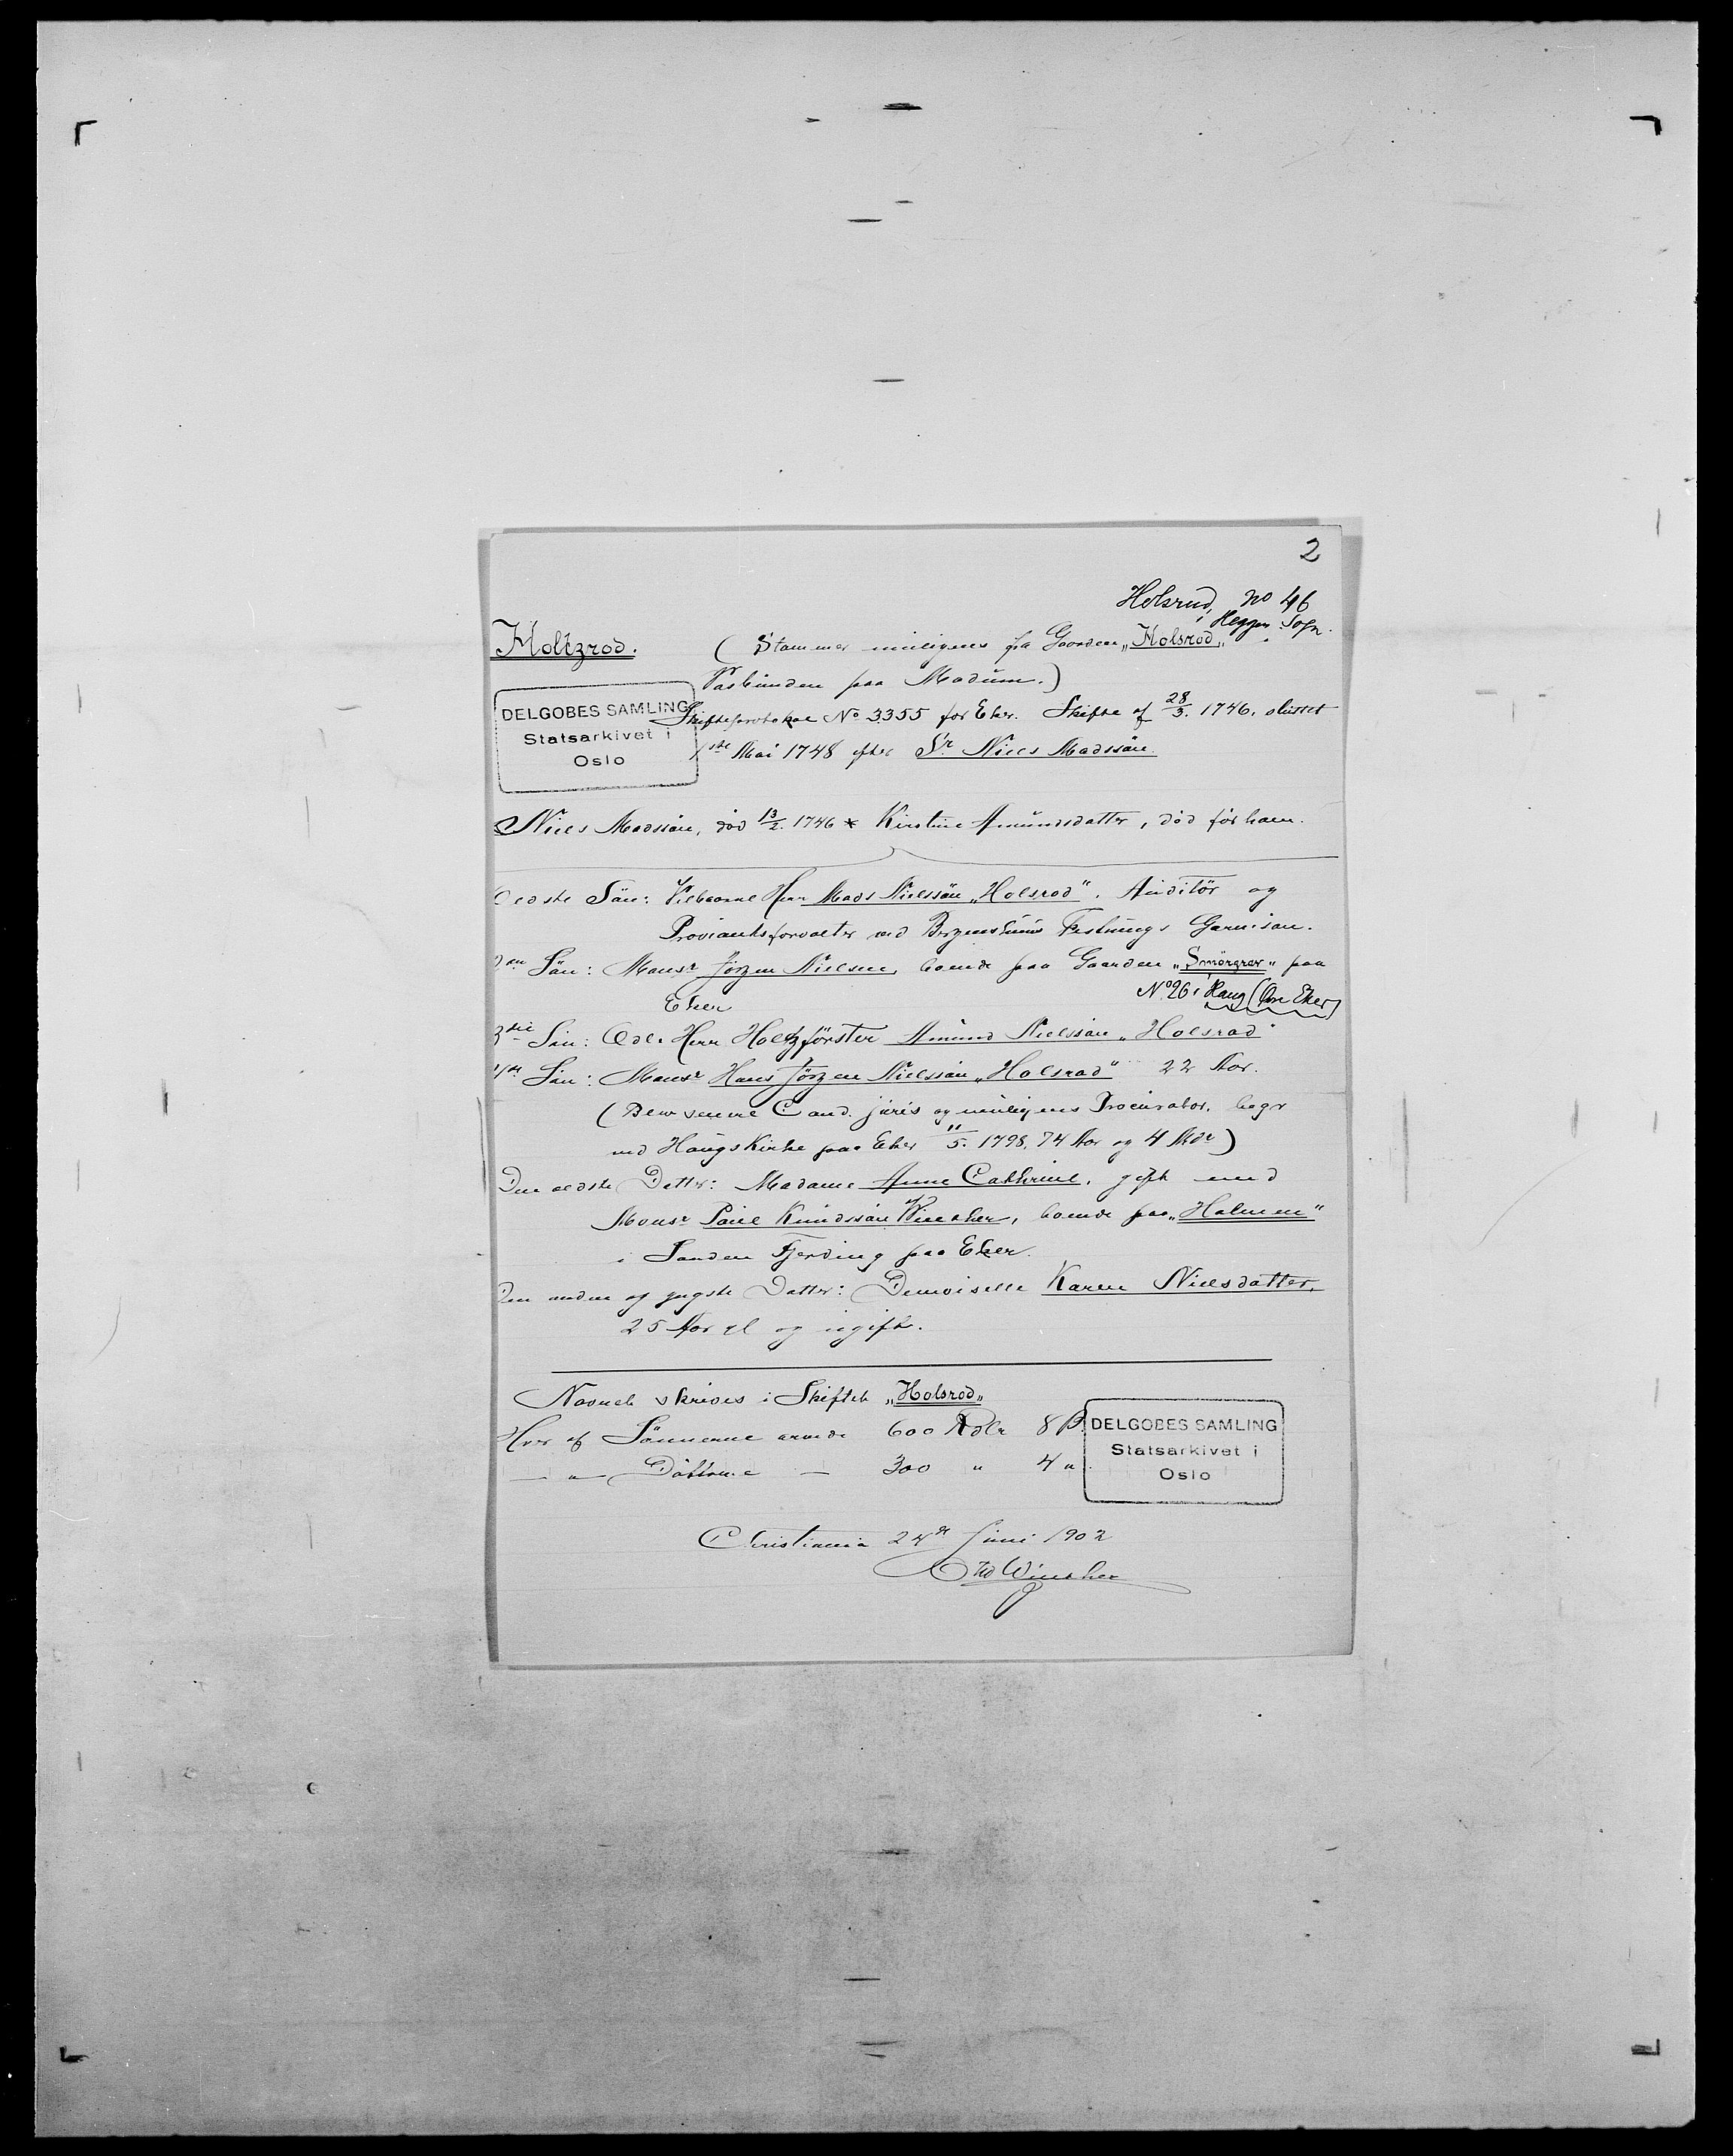 2
Holsrud, No 46
i Heggen Sogn.
Holtzrod.
(Stammer muligens fra Gaarden „Holsrod„
Vasbunden paa Modum.)
DELGOBES SAMLING
Statsarkivet i
Oslo
Skifteprotokol No 3355 for Eker. Skifte af 28/3. 1746, sluttet
1ste Mai 1748 efter Sr. Niels Madssön
Niels Madssön, död 13/2. 1746 * Kirstine Amundsdatter, död för ham.
Ældste Sön: Velbaarne Herr Mads Nielssön „Holsrod". Auditör og
Proviantsforvalter ved Bergenshuus Festnings Garnison.
2den Sön: Monsr Jörgen Nielsen, boende paa Gaarden „Smörgrav" paa
Eker
No 26 i Haug (Øvre Eker)
3die Sön: Ædle Herr Holtzförster Amund Nielssön „Holsrod"
4de Sön: Monsr Hans Jörgen Nielssön „Holsrod" 22 Aar.
(Blev senere Cand. juris og muligens Procurator, begr
ved Haugs Kirke paa Eker 11/5. 1798, 74 Aar og 4 Mdr)
Den ældste Datter: Madame Anne Cathrine, gift med
Monsr Povel Knudssön Wincker, boende paa „Holmen"
i Sanden Fjerding paa Eker.
Den anden og yngste Datter: Demoiselle Karen Nielsdatter,
25 Aar gl og ugift.
Navnet skrives i Skiftet „Holsrod„
Hver af Sönnerne arvede 600 Rdlr 8 β.
— " — Döttrene — 300 " 4 ".
DELGOBES SAMLING
Statsarkivet i
Oslo
Christiania 24de Juni 1902